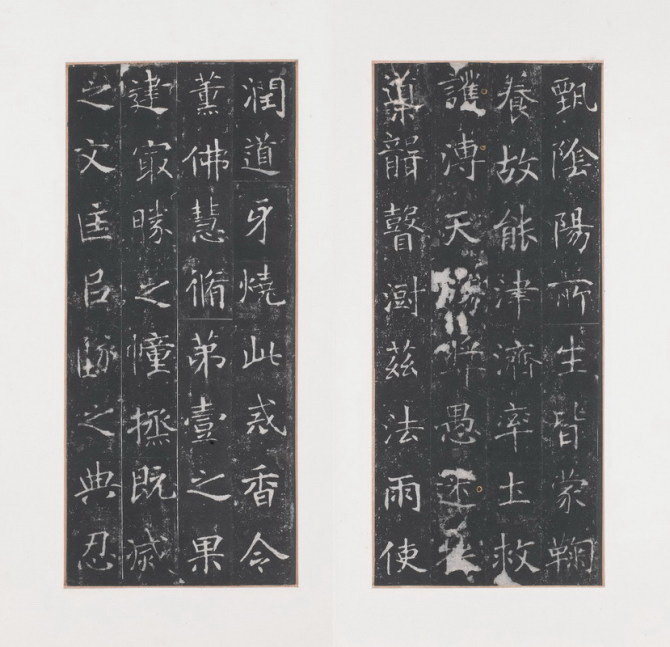 甄陰陽所生皆蒙鞠
養故能津濟率土救
護溥天獎愚迷
導聾瞽澍茲法雨使
潤道牙燒此戒香令
薰佛慧脩第壹之果
建㝡勝之幢拯既滅
之文匡已墜之典忍